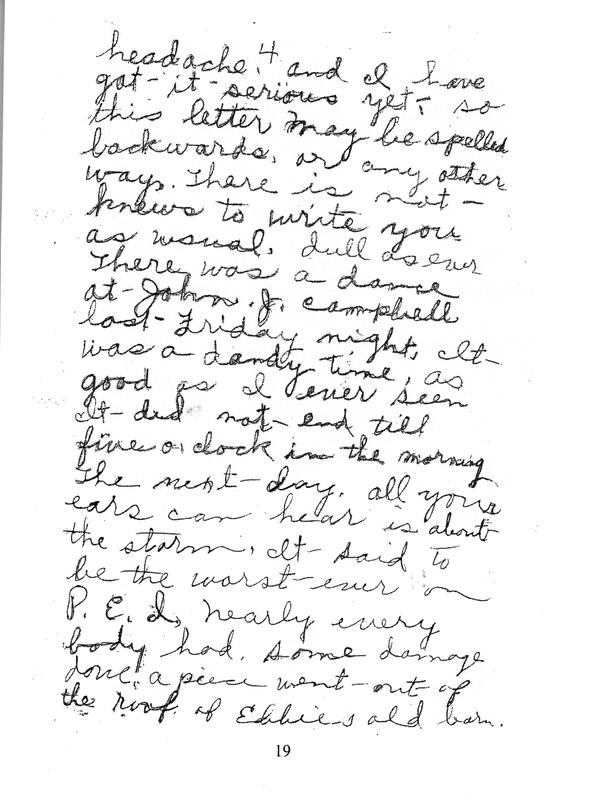 headache. 4 and I have
got it serious yet, so
this letter may be spelled
backwards, or any other
way. There is not
knews to write you
as usual, dull as ever
There was a dance
at John. J. Campbell
last Friday night, It
was a dandy time, as
good as I ever seen
It did not end till
five o, clock in the morning
The next day, all your
ears can hear is about
the storm, It said to
be the worst ever on
P. E. I, nearly every
body had, some damage
done, a piece went out of
the roof of Ebbie,s old barn.
19